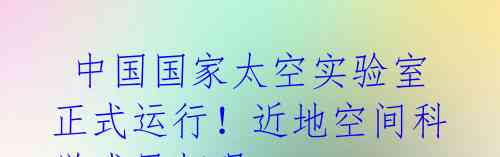 中国国家太空实验室
正式运行！近地空间科